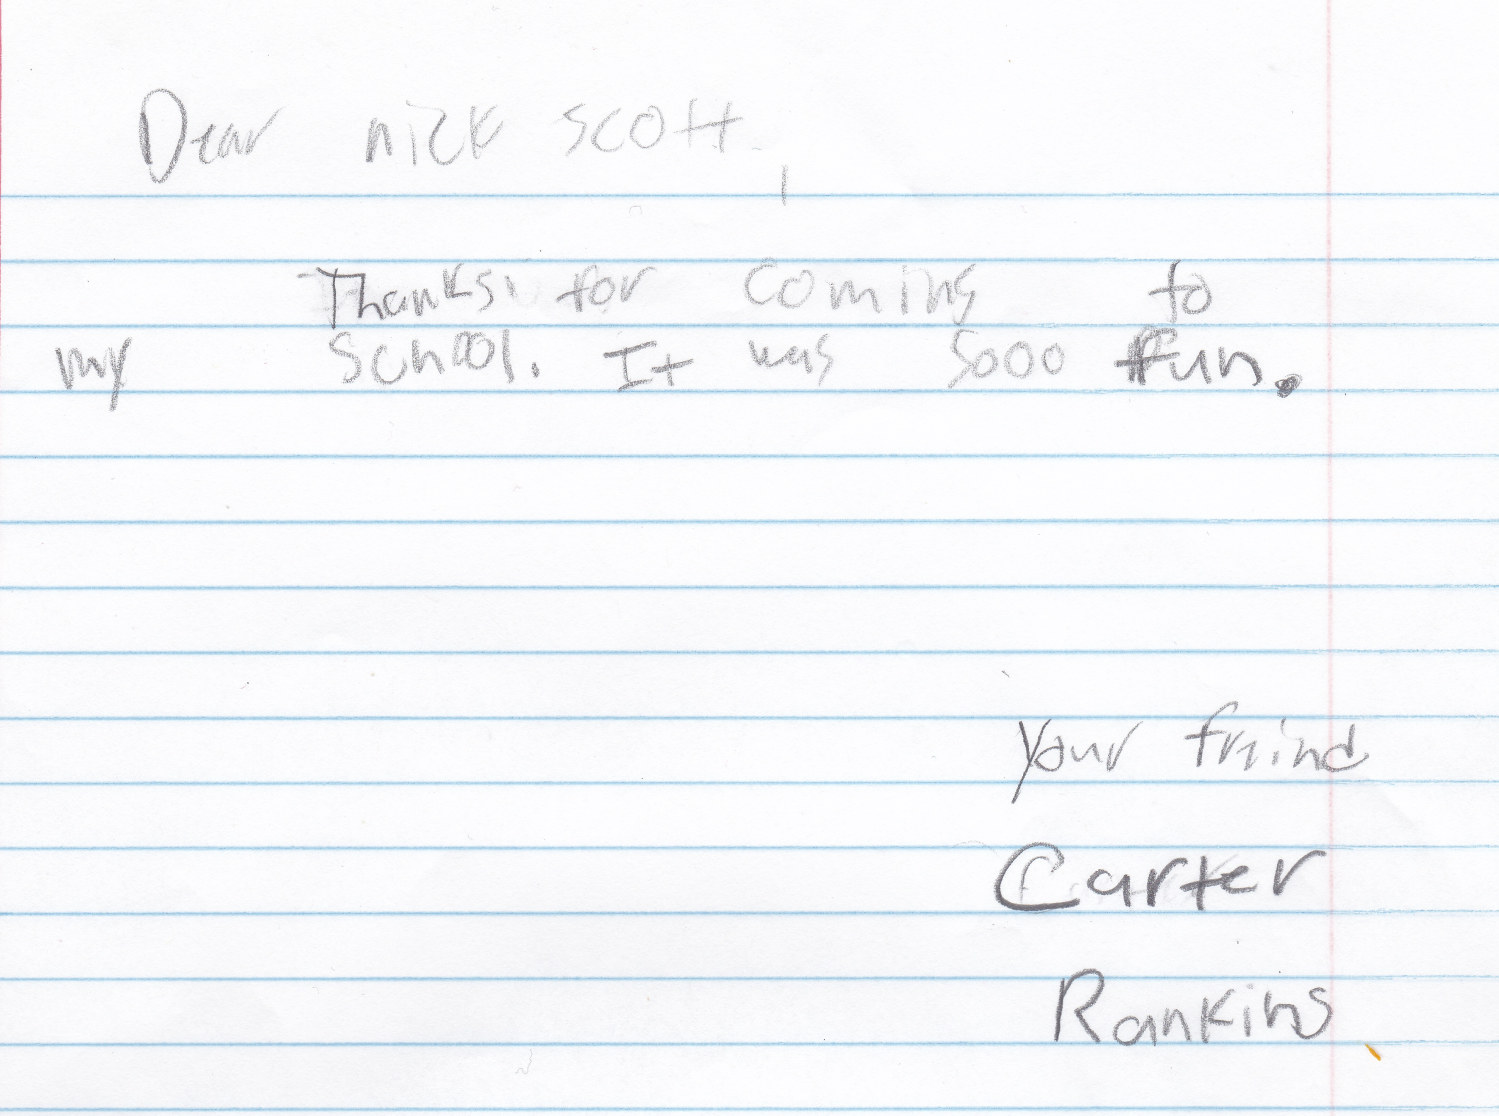 Dear nick scott,
Thanks for coming to
my School. It was sooo fun.
your freind
Carter
Rankins